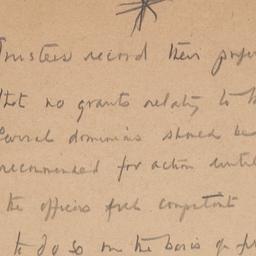 Trustees record their
that no grants relating to
dominions should be
recommended for action until
the officers feel competent
to do so on the basis of